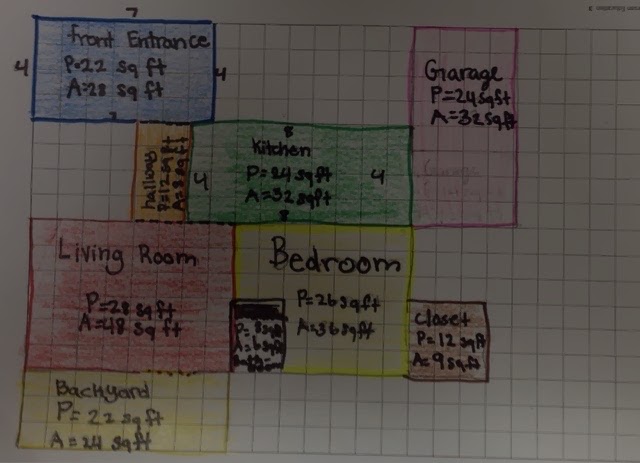 7
front Entrance
4
P=22 sq ft
4
A=28 sq ft
7
Garage
P=24 sq ft
A=32 sq ft
hallway
P=12 sq ft
A=8 sq ft
8
Kitchen
4
P=24 sq ft
4
A=32 sq ft
8
Living Room
P=28 sq ft
A=48 sq ft
Bedroom
P=26 sq ft
A=36 sq ft
A=6 sq ft
Closet
P=12 sq ft
A=9 sq ft
Backyard
P=22 sq ft
A=24 sq ft